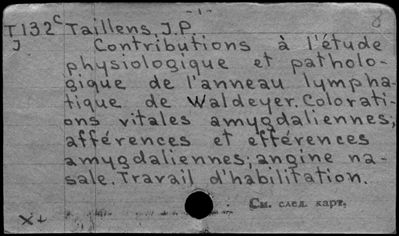 - 1 -
T132c Taillens, J.P
J Contributions à l'étude
physiologique et patholo-
gique de l'anneau lympha-
tique de Waldeyer. Colorati-
ons vitales amygdaliennes,
afférences et efférences
amygdaliennes; angine na-
sale. Travail d'habilitation.
См. след. карт.
X+